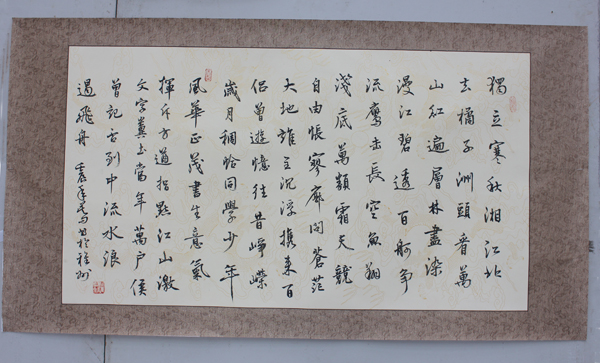 獨立寒秋湘江北
去橘子洲頭看萬
山紅遍層林盡染
漫江碧透百舸争
流鷹击長空魚翔
淺底萬類霜天競
自由悵寥廓問蒼茫
大地誰主沉浮攜来百
侣曾遊憶往昔崢嶸
歲月稠恰同學少年
風華正茂書生意氣
揮斥方遒指點江山激
文字糞土當年萬户侯
曾記否到中流水浪
遏飛舟